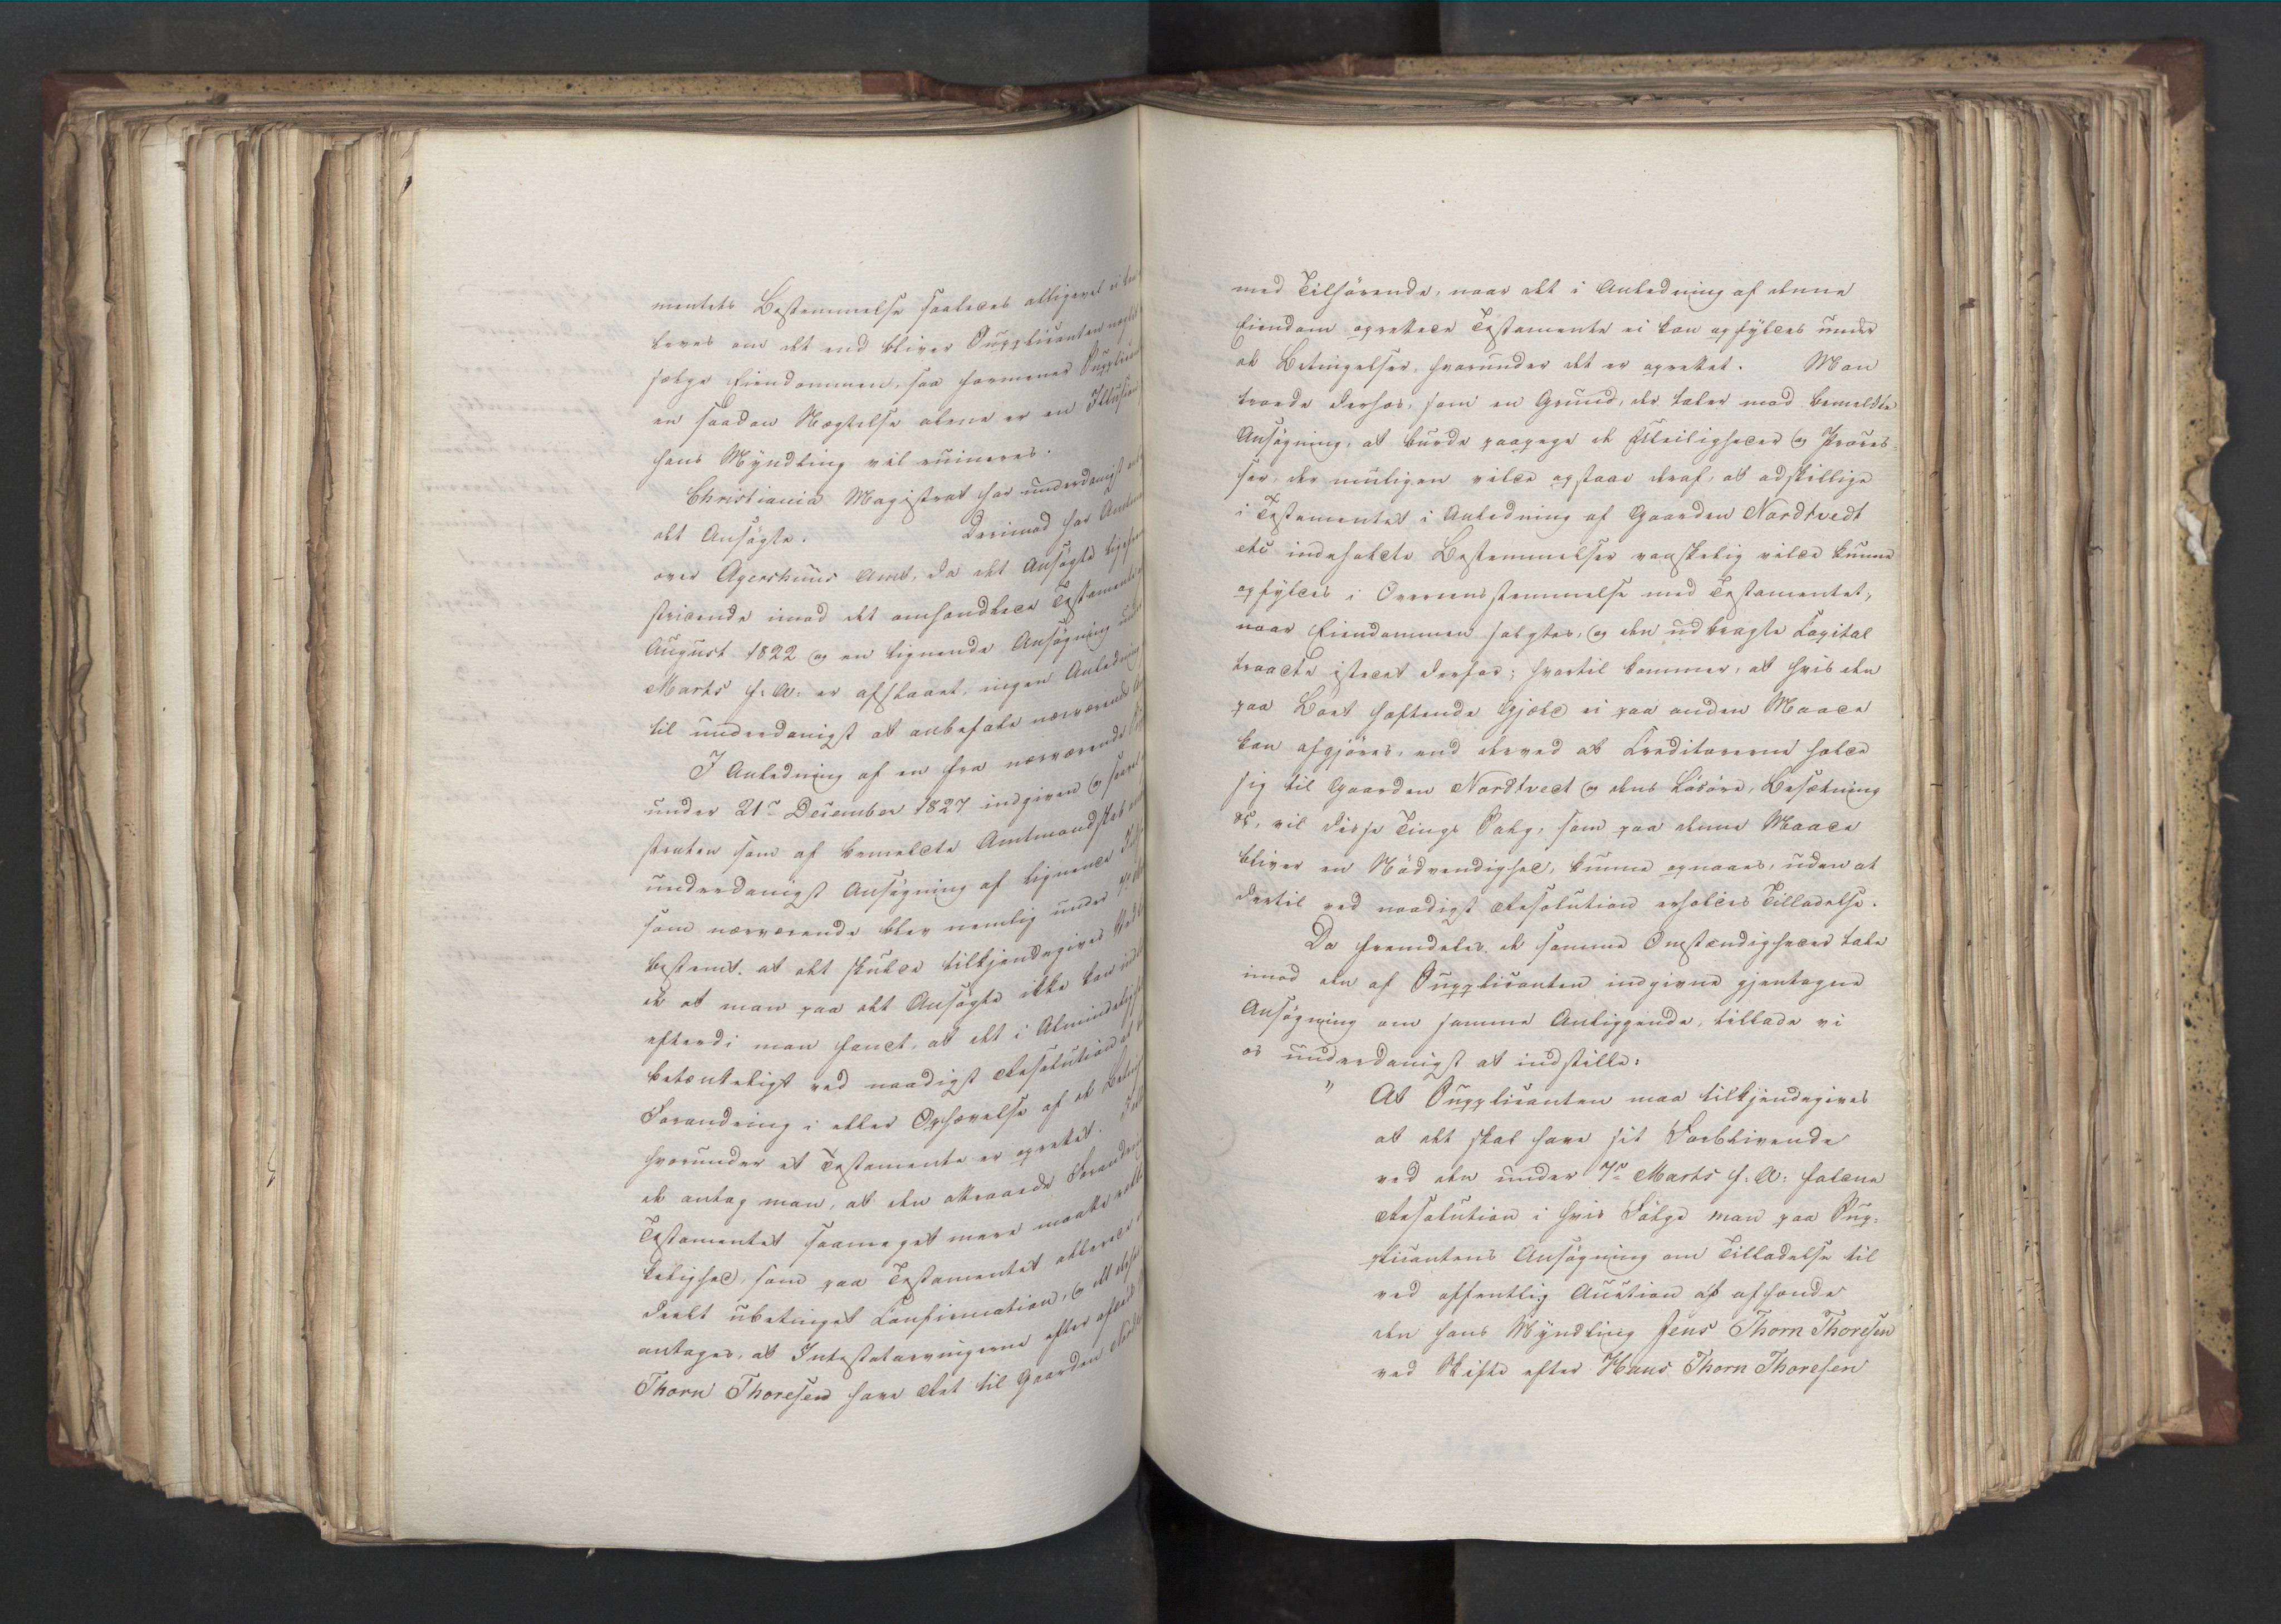 mentets Bestemmelse saaledes alligevel ei
leves om det end bliver Supplicanten
sælge Eiendommen, saa formener
en saadan Nægtelse alene er en Illusion
hans Myndling vil ruineres.
Christiania Magistrat har underdanigst
det Ansøgte. Derimod har
over Agershuus Amt, da det Ansøgte
stridende imod det omhandlede Testamente
August 1822 og en lignende Ansøgning
Marts f: A: er afslaaet, ingen Anledning
til underdanigst at anbefale nærværende
I Anledning af en fra nærværende
under 21de December 1827 indgiven og
som af bemeldte Amtmand
underdanigst Ansøgning af lignende
som nærværende blev nemlig under 7de
bestemt, at det skulde tilkjendegives
at man paa det Ansøgte ikke kan
efterdi man fandt, at det i Almindelighed
betænkeligt ved naadigst Resolution
Forandring i eller Ophævelse af de
hvorunder et Testamente er oprettet.
antog man, at den attraaede Forandring
Testamentet saameget mere maatte
kelighed, som paa Testamentet allerede
deelt ubetinget Confirmation, og
antages, at Intestatarvingerne efter
Thorn Thoresen have Ret til Gaarden
med Tilhørende, naar det i Anledning af denne
Eiendom oprettede Testamente ei kan opfyldes under
de Betingelser, hvorunder det er oprettet. Man
troede derhos, som en Grund, der taler mod bemeldte
Ansøgning, at burde paapege de Uleiligheder og Proces-
ser, der muligen vilde opstaae deraf, at adskillige
i Testamentet i Anledning af Gaarden Nordtvedt
etc indeholdte Bestemmelser vanskelig vilde kunne
opfyldes i Overeensstemmelse med Testamentet,
naar Eiendommen solgtes, og den udbragte Capital
traadte istedet derfor; hvortil kommer, at hvis den
paa Boet heftende Gjeld ei paa anden Maade
kan afgjøres, end derved at Creditorerne holde
sig til Gaarden Nordtvedt og dens Løsøre, Besætning
, vil disse Tings Salg, som paa denne Maade
bliver en Nødvendighed, kunne opnaaes, uden at
dertil ved naadigst Resolution erholdes Tilladelse.
Da fremdeles de samme Omstændigheder tale
imod den af Supplicanten indgivne gjentagne
Ansøgning om samme Anliggende, tillade vi
os underdanigst at indstille:
" At Supplicanten maa tilkjendegives
at det skal have sit Forblivende
ved den under 7de Marts f: A: faldne
Resolution i hvis Følge man paa Sup-
plicantens Ansøgning om Tilladelse til
ved offentlig Auction at afhænde
den hans Myndling Jens Thorn Thoresen
ved Skifte efter Hans Thorn Thoresen